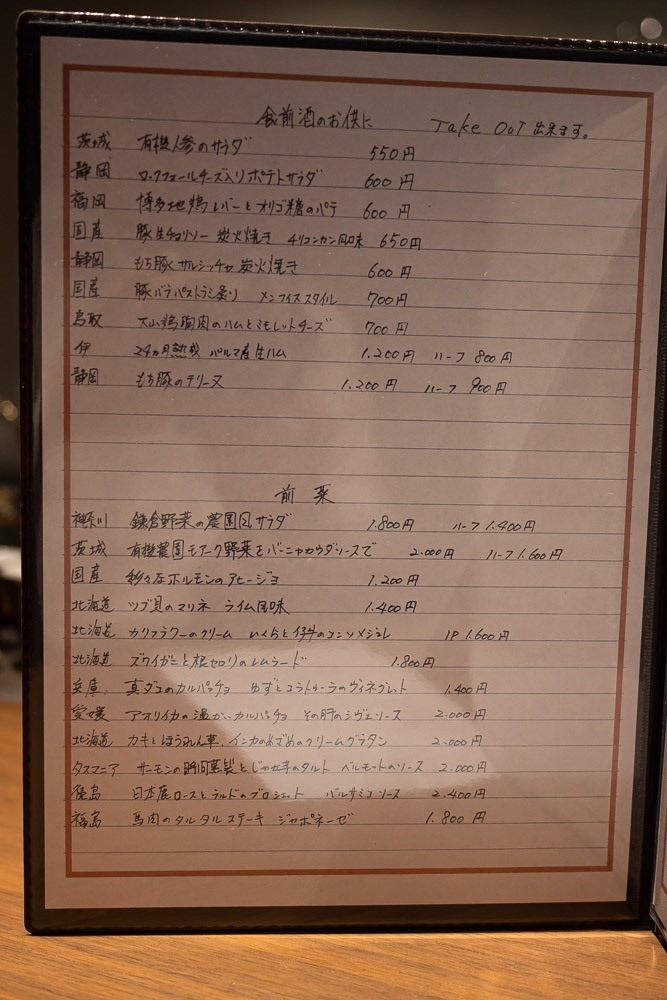 食前酒のお供に Take OUT 出来ます。
茨城 有機人参のサラダ 550円
静岡 ロックフォールチーズ入りポテトサラダ 600円
福岡 博多地鶏レバーとオリゴ糖のパテ 600円
国産 豚生チョリソー 炭火焼き チリコンカン風味 650円
静岡 もち豚サルシッチャ炭火焼き 600円
国産 豚バラパストラミ炙り メンフィススタイル 700円
鳥取 大山鶏胸肉のハムとミモレットチーズ 700円
伊 24ヵ月熟成 パルマ産生ハム 1.200円 ハーフ 800円
静岡 もち豚のテリーヌ 1.200円 ハーフ 900円
前菜
神奈川 鎌倉野菜の農園風サラダ 1.800円 ハーフ 1.400円
茨城 有機農園モアーク野菜をバーニャカウダソースで 2.000円 ハーフ 1.600円
国産 色々なホルモンのアヒージョ 1.200円
北海道 ツブ貝のマリネ ライム風味 1.400円
北海道 カリフラワーのクリーム いくらと のコンソメジュレ 1P 1.600円
北海道 ズワイガニと根セロリのレムラード 1.800円
兵庫 真ダコのカルパッチョ ゆずとコラトゥーラのヴィネグレット 1.400円
愛媛 アオリイカの温かいカルパッチョ その肝のシヴェソース 2.000円
北海道 カキとほうれん草、インカのめざめのクリームグラタン 2.000円
タスマニア サーモンの瞬間薫製とじゃが芋のタルト ベルモットのソース 2.000円
徳島 日本鹿ロースとラルドのブロシェット バルサミコソース 2.400円
福島 馬肉のタルタルステーキ ジャポネーゼ 1.800円